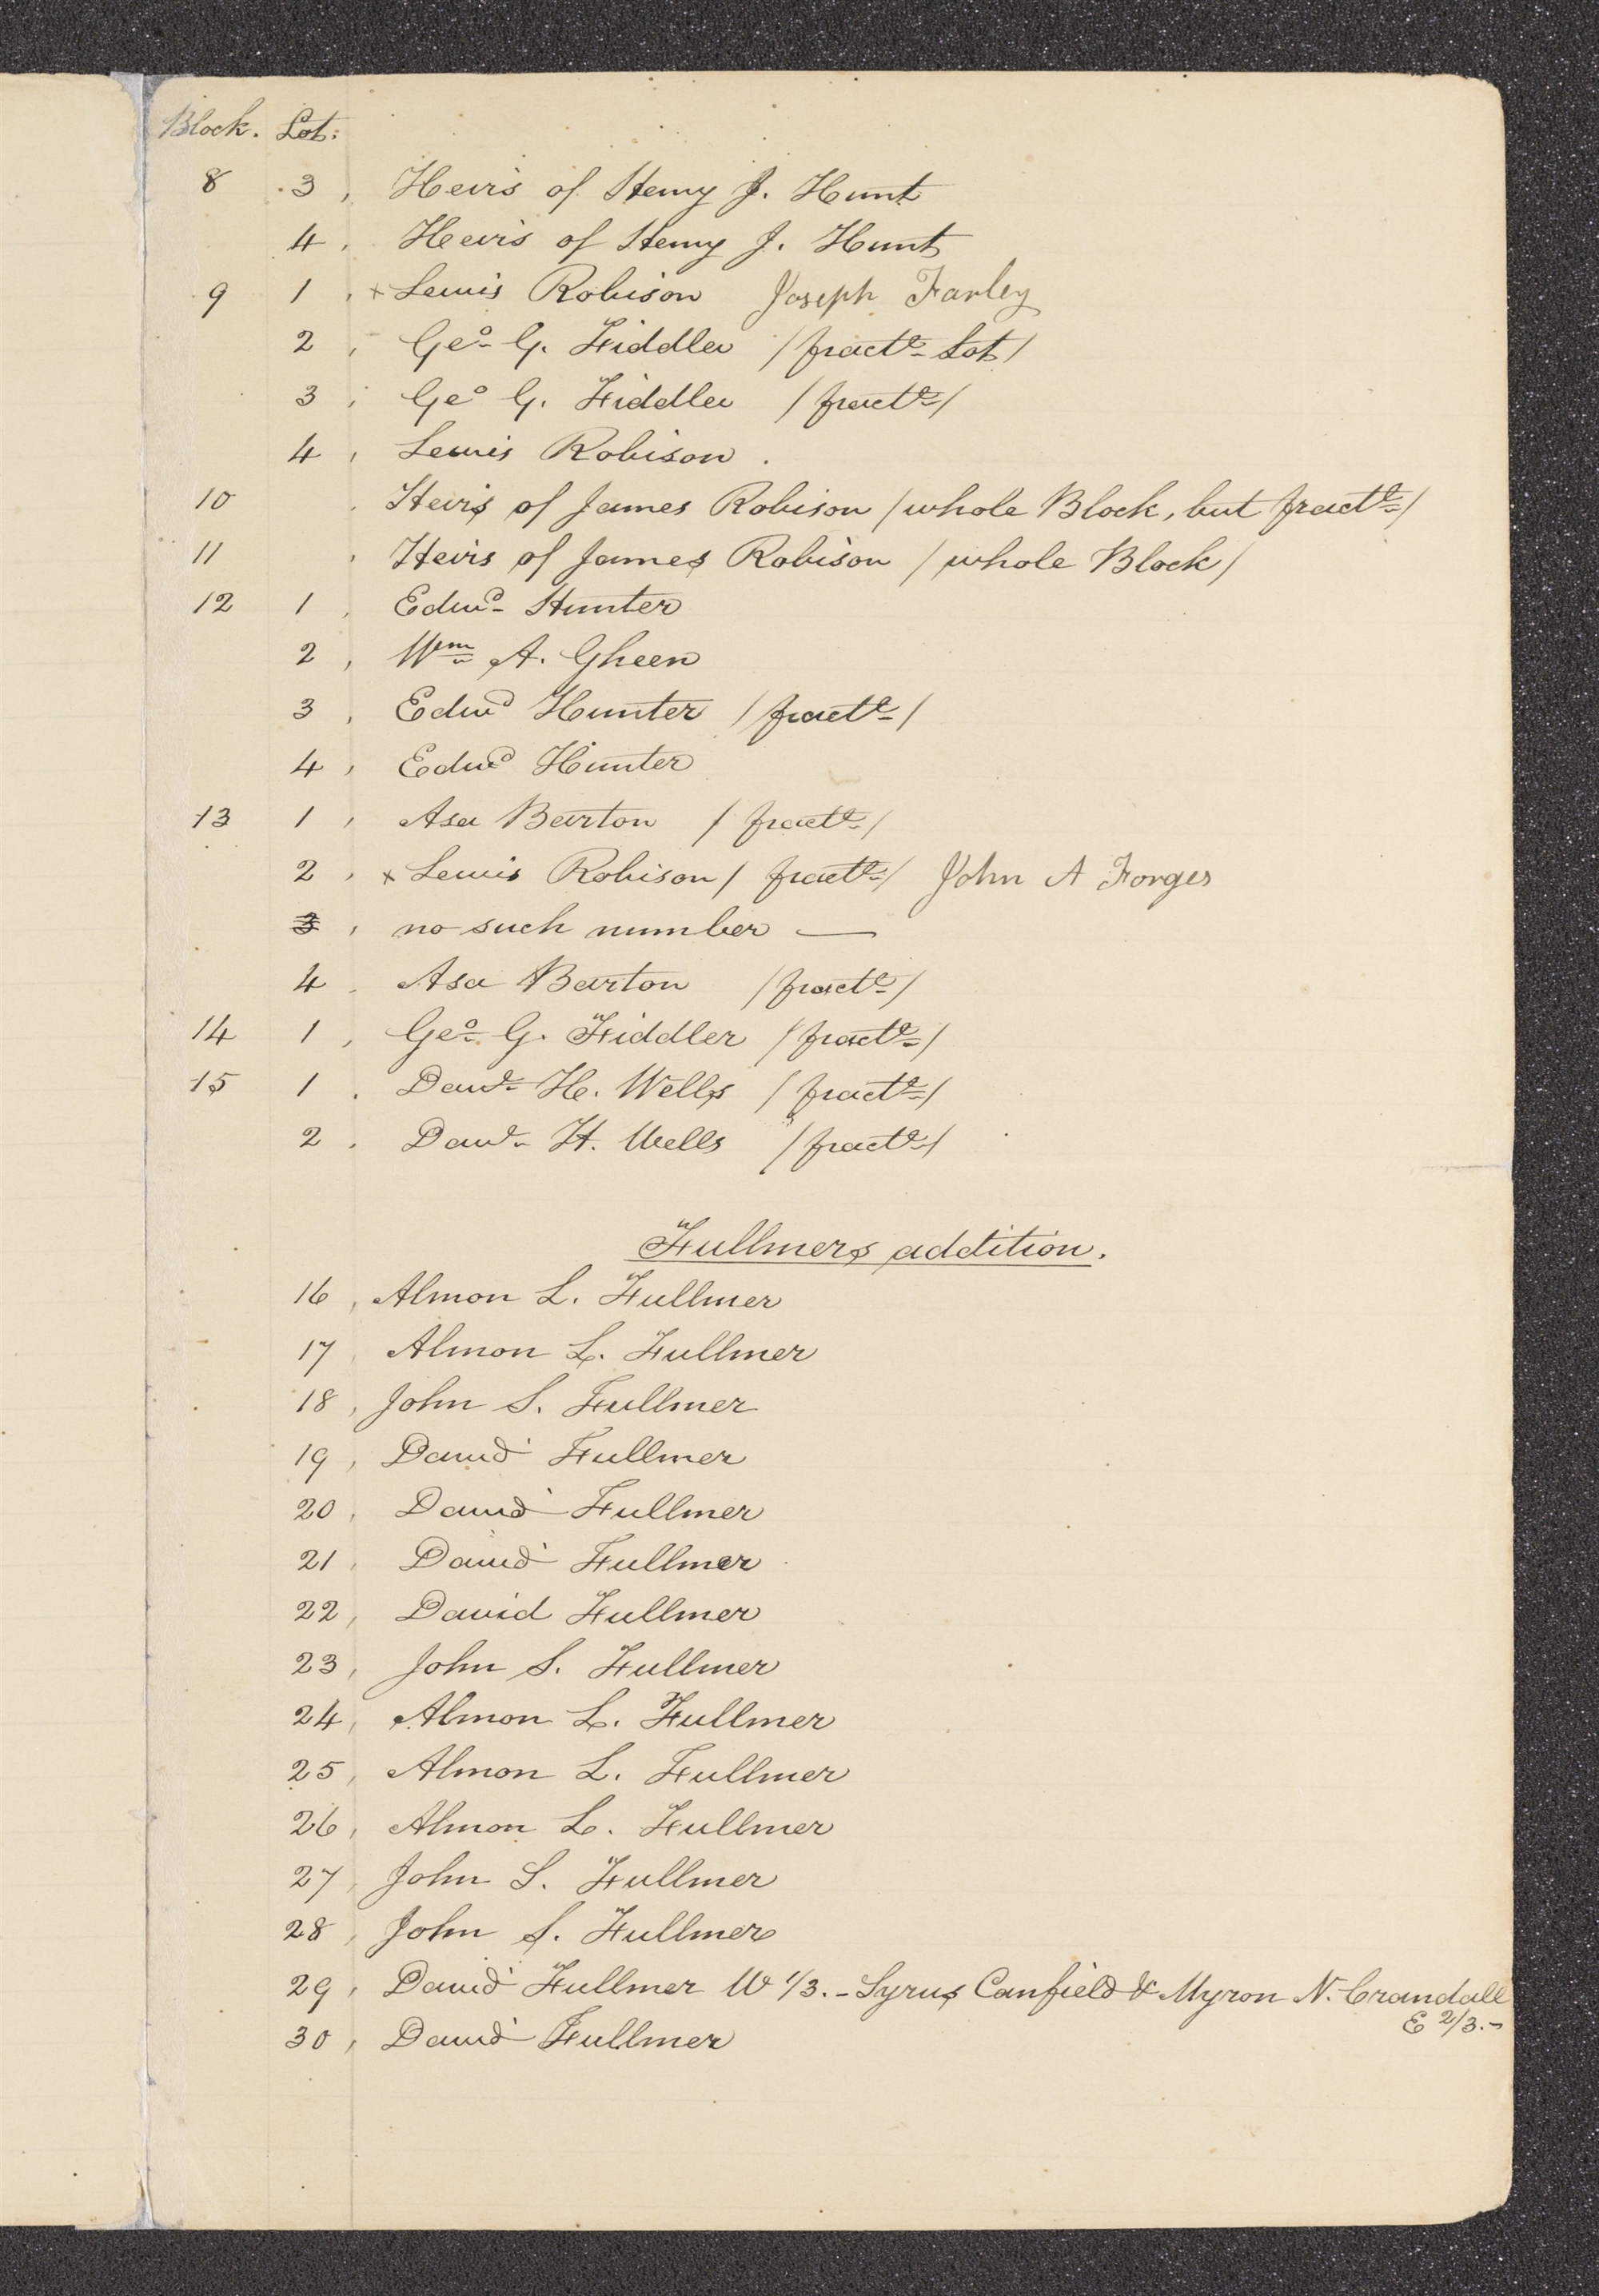 Block. Lot:
8 3, Heirs of Henry J. Hunt
4, Heirs of Henry J. Hunt
9 1, x Lewis Robison Joseph Farley
2, Geo. G. Fiddler /fractl. Lot/
3, Geo G. Fiddler /fractl./
4, Lewis Robison.
10 Heirs of James Robison /whole Block, but fractl./
11 Heirs of James Robison /whole Block/
12 1, Edwd. Hunter
2, Wm. A. Gheen
3, Edwd Hunter /fractl./
4, Edwd Hunter
13 1, Asa Barton /fractl./
2, x Lewis Robison /fractl./ John A Forges
3, no such number —
4, Asa Barton /fractl./
14 1, Geo. G. Fiddler /fractl./
15 1. Danl. H. Wells /fractl./
2. Danl. H. Wells /fractl./
Fullmers addition.
16, Almon L. Fullmer
17, Almon L. Fullmer
18, John S. Fullmer
19, David Fullmer
20, David Fullmer
21, David Fullmer
22, David Fullmer
23, John S. Fullmer
24, Almon L. Fullmer
25, Almon L. Fullmer
26, Almon L. Fullmer
27, John S. Fullmer
28, John S. Fullmer
29, David Fullmer W 1/3. - Syrus Canfield & Myron N. Crandall
E 2/3.-
30, David Fullmer